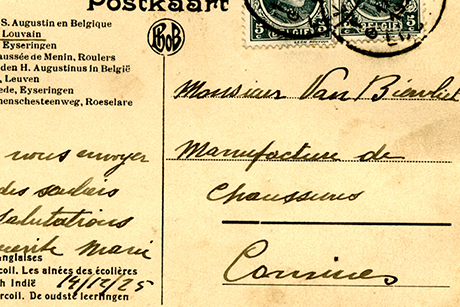 Postkaart
S. Augustin en Belgique
Louvain
Eyseringen
aussée de Menin, Roulers
den H. Augustinus in België
, Leuven
ede, Eyseringen
nenschesteenweg, Roeselare
BELGIË
5 5
Monsieur Van Biervliet
Manufacture de
Chaussures
Comines
nous envoyer
des souliers
Salutations
Marie
anglaises
rcoil. Les aînées des écolières
h Indië 14/12/25
rcoil. De oudste leerlingen